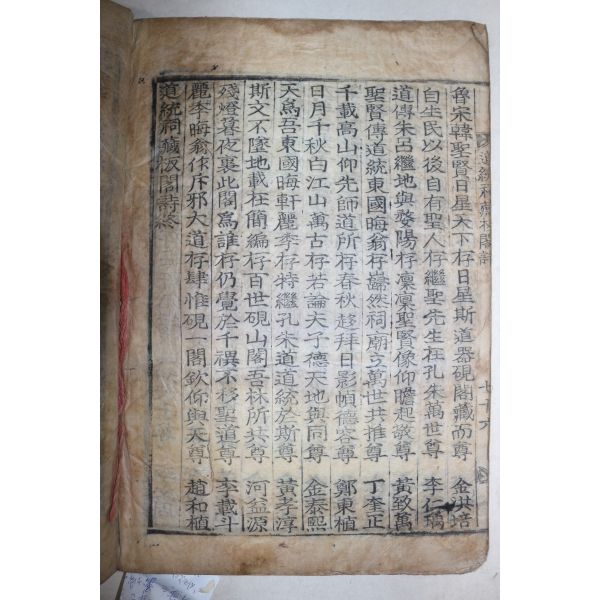 魯宋韓聖賢日星天下存日星斯道器硯閣藏而尊 金洪培
自生民以後自有聖人存繼聖先生在孔朱萬世尊 李仁
道傳朱呂繼地與發陽存凜凜聖賢像仰瞻起敬尊 黃致萬
聖賢傳道統東國晦翁存巋然祠廟立萬世共推尊 丁奎正
千載高山仰先師道所存春秋趍拜日影幀德容尊 鄭東植
日月千秋白江山萬古存若論夫子德天地與同尊 金泰熙
天爲吾東國晦軒麗季存特繼孔朱道道統於斯尊 黃孝淳
斯文不墜地載在簡編存百世硯山閣吾林所共尊 河益源
殘燈暮夜裏此閣爲誰存仍覺於千禩不移聖道尊 李載斗
麗季晦翁作斥邪大道存肆惟硯一閣欽仰與天尊 趙和植
道統祠藏板閣詩終
道統祠藏板閣詩
七十六